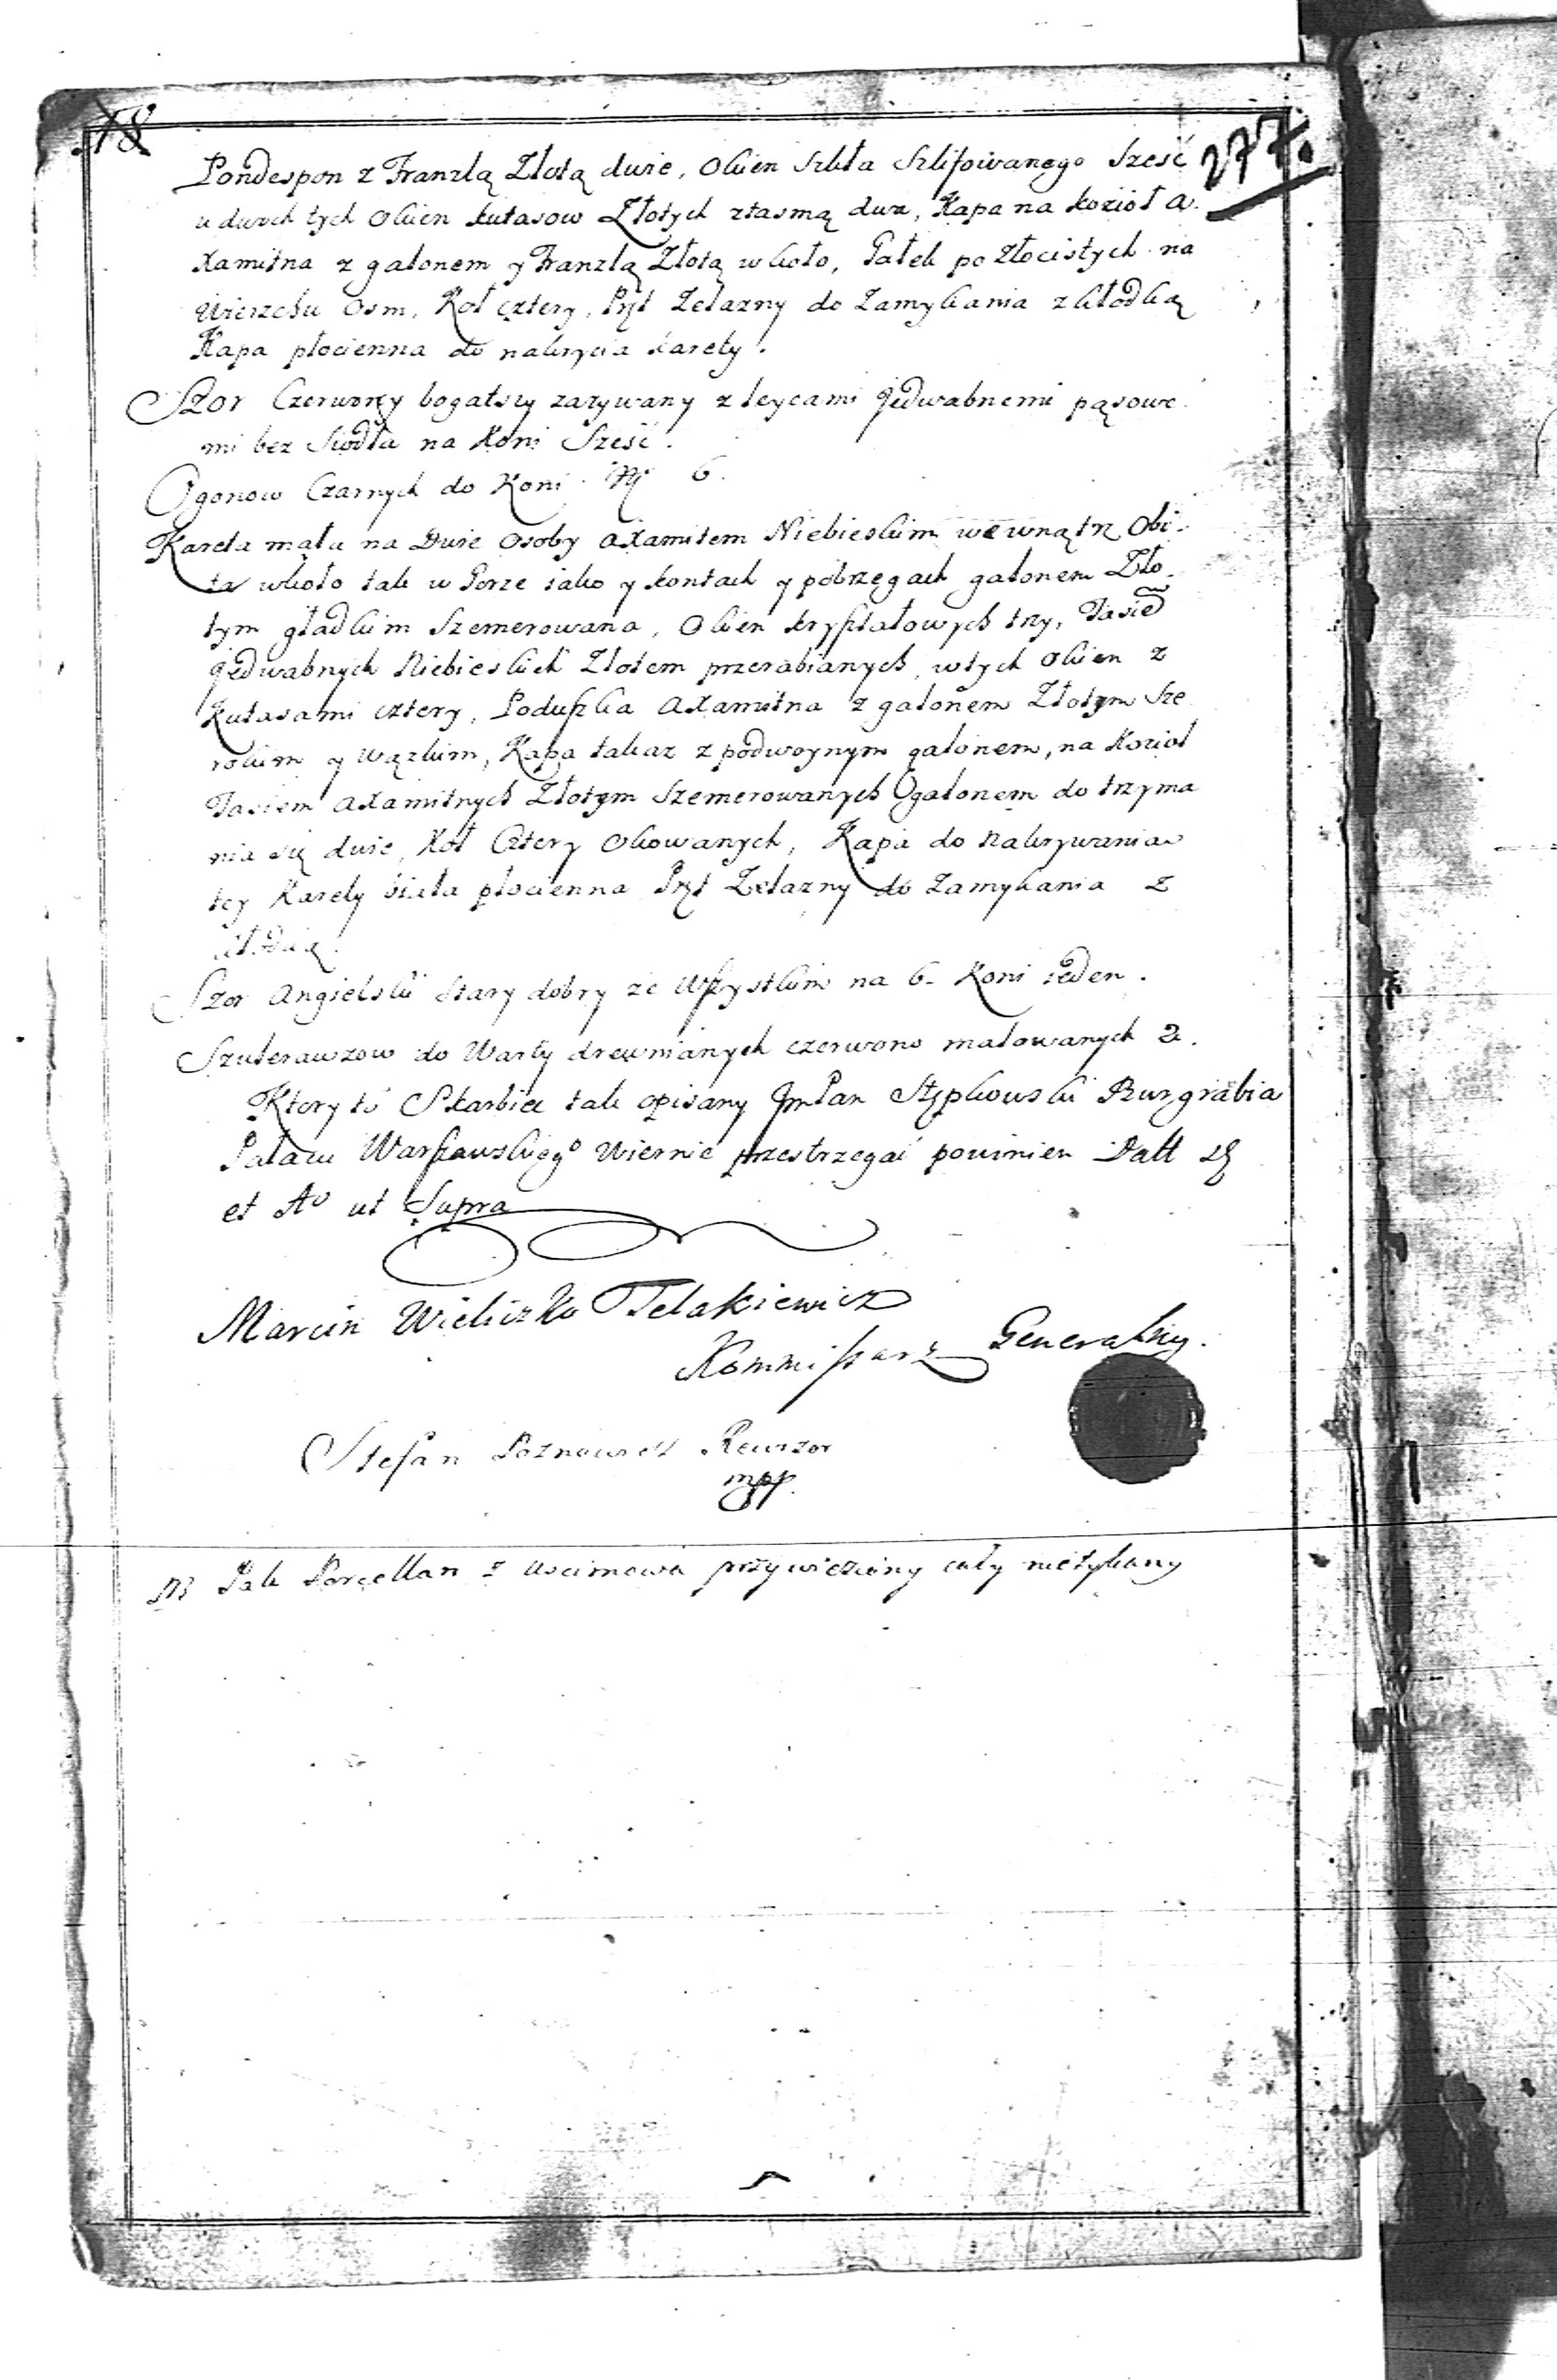 18
277.
Pondespon z Franzlą Złotą dwie, Okien Szkła Szlifowanego Sześć
u dwoch tych Okien kutasow Złotych z tasmą dwa, Kapa na kozioł a-
xamitna z galonem y Franzlą Złotą wkoło, Gałek pozłocistych na
Wierzchu Osm, Koł cztery, Pręt Zelazny do Zamykania z kłodką
Kapa płocienna do nakrycia karety.
Szor Czerwony bogatszy zazywany z leycami Jedwabnemi pąsowe-
mi bez Siodła na Koni Sześć.
Ogonow Czarnych do Koni N 6.
Kareta mała na Dwie Osoby axamitem Niebieskim wewnątrz Obi-
ta wkoło tak w Gorze iako y kontach y pobrzegach galonem Zło-
tym gładkim Szemerowana, Okien krysztalowych trzy, Tasie
Jedwabnych Niebieskich Złotem przerabianych, w tych Okien z
Kutasami cztery, Poduszka axamitna z galonem Złotym Sze
rokim y wązkim, Kapa takaz z podwoynym galonem, na Kozioł
Tasiem axamitnych Złotym Szemerowanych Galonem do trzyma
nia się dwie, Koł Cztery Okowanych, Kapa do nakrywania
tey Karety biała płocienna Pręt Zelazny do Zamykania z
kłodką.
Szor Angielski Stary dobry ze Wszystkim na 6. Koni ieden.
Szulerawzow do Warty drewnianych czerwono malowanych 2.
Ktory to Skarbiec tak opisany JmPan Stępkowski Burgrabia
Pałacu Warszawskiego Wiernie przestrzegać powinien Datt
et Ao ut Supra
Marcin Wieliczko Telakiewicz
Kommissarz Generalny.
Stefan Rewizor
mpp.
Pak Porcellan z Uscimowa przywieziony cały nietykany